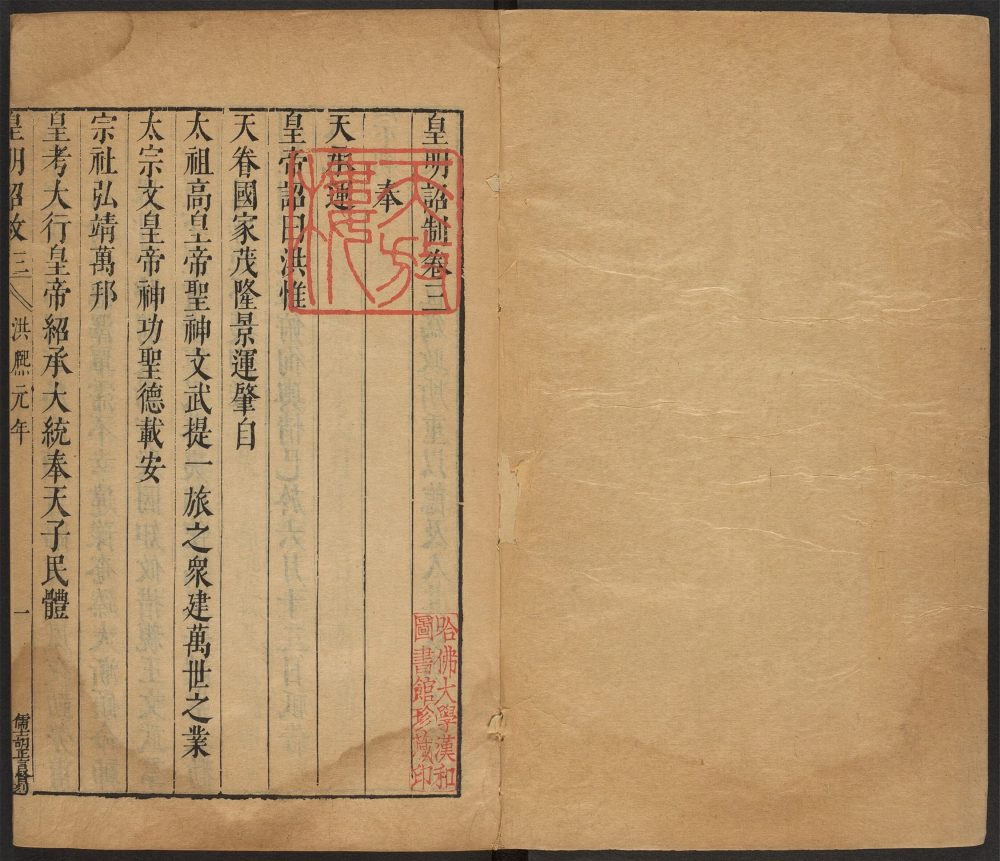 皇明詔制卷三
奉
天承運
皇帝詔曰洪惟
天眷國家茂隆景運肇自
太祖高皇帝聖神文武提一旅之衆建萬世之業
太宗文皇帝神功聖德載安
宗社弘靖萬邦
皇考大行皇帝紹承大統奉天子民體
皇明詔攽三
洪熙元年
一
哈佛大學漢和
圖書館珍藏印